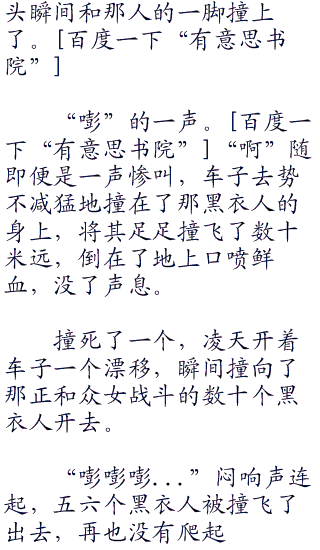 头瞬间和那人的一脚撞上
了。[百度一下“有意思书
院”]
“嘭”的一声。[百度一
下“有意思书院”]“啊”随
即便是一声惨叫，车子去势
不减猛地撞在了那黑衣人的
身上，将其足足撞飞了数十
米远，倒在了地上口喷鲜
血，没了声息。
撞死了一个，凌天开着
车子一个漂移，瞬间撞向了
那正和众女战斗的数十个黑
衣人开去。
“嘭嘭嘭...”闷响声连
起，五六个黑衣人被撞飞了
出去，再也没有爬起